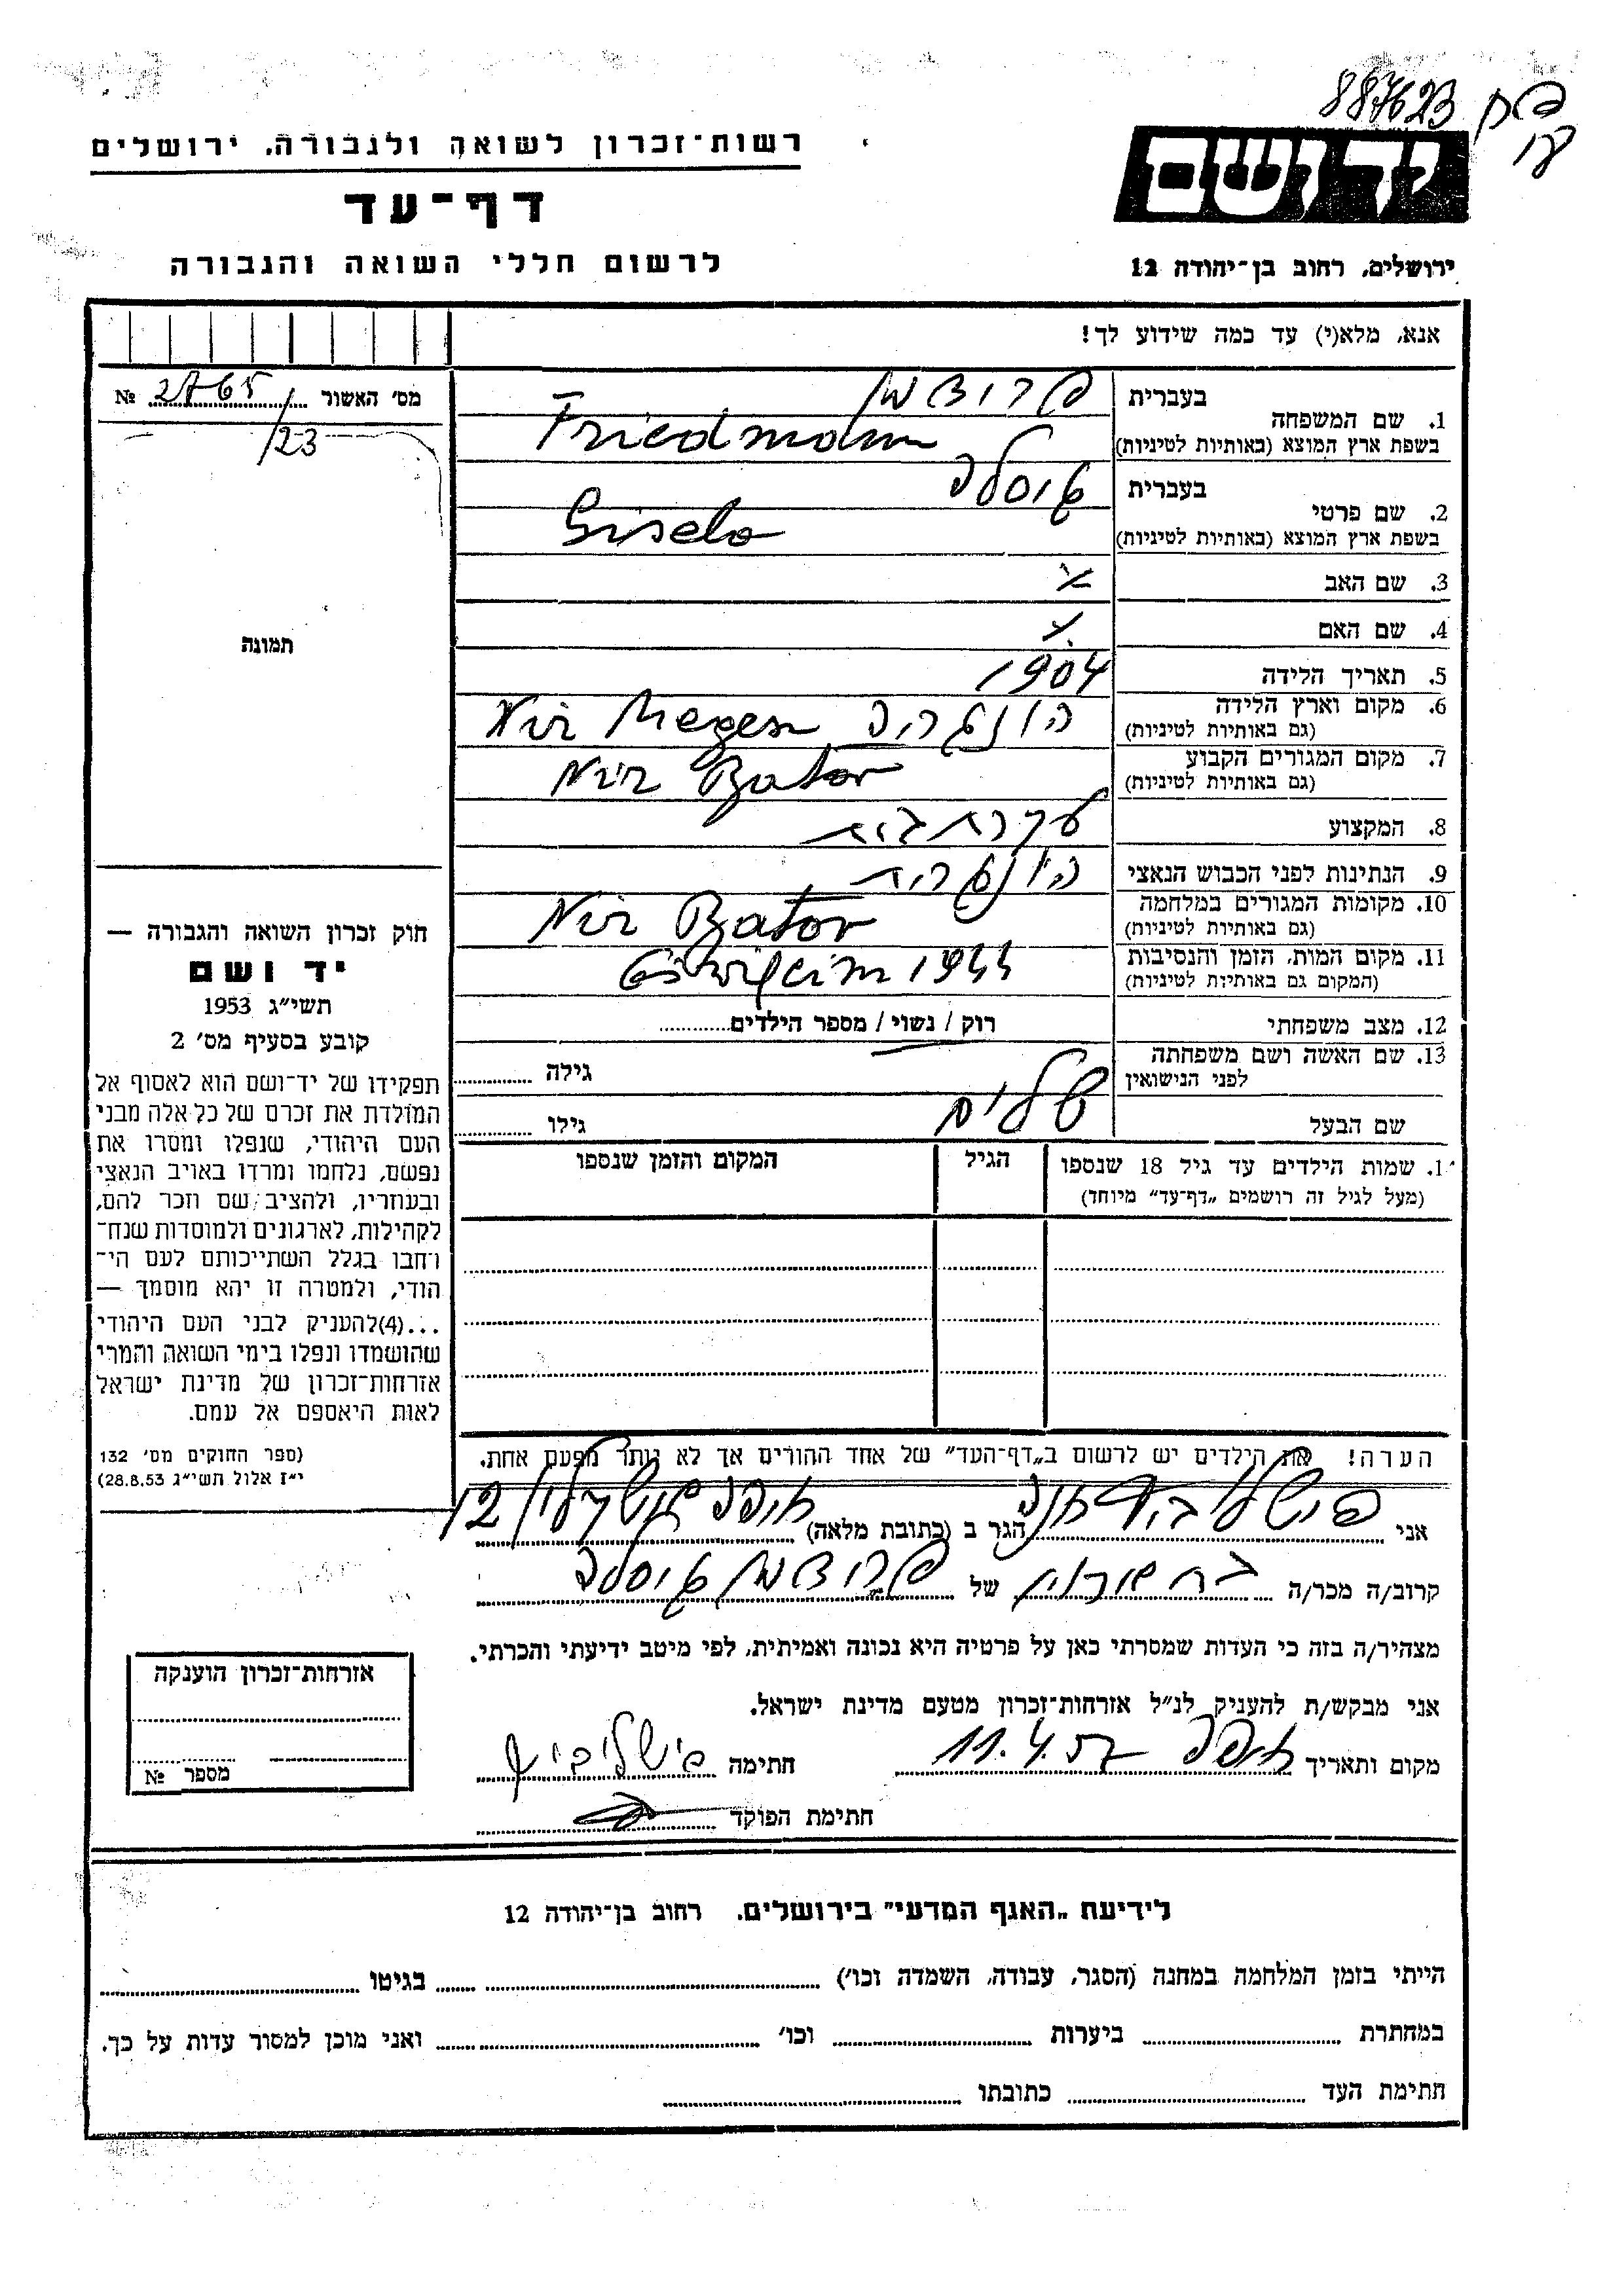 887623
רשות־זכרון לשואה ולגבורה, ירושלים
יד ושם
דף־עד
לרשום חללי השואה והגבורה
ירושלים, רחוב בן־יהודה 12
אנא, מלא(י) עד כמה שידוע לך!
מס׳ האשור № 2765
/23
תמונה
1. שם המשפחה
בעברית פרידמן
בשפת ארץ המוצא (באותיות לטיניות) Friedmann
2. שם פרטי
בעברית גיסלה
בשפת ארץ המוצא (באותיות לטיניות) Gisela
3. שם האב
4. שם האם
5. תאריך הלידה 1904
6. מקום וארץ הלידה
(גם באותיות לטיניות) הונגריה Nir
7. מקום המגורים הקבוע
(גם באותיות לטיניות) Nir Bator
8. המקצוע עקרת בית
9. הנתינות לפני הכבוש הנאצי הונגרית
10. מקומות המגורים במלחמה
(גם באותיות לטיניות) Nir Bator
11. מקום המות, הזמן והנסיבות
(המקום גם באותיות לטיניות) 1944
12. מצב משפחתי רוק / נשוי / מספר הילדים
13. שם האשה ושם משפחתה
לפני הנישואין גילה
שם הבעל גילו
1. שמות הילדים עד גיל 18 שנספו הגיל המקום והזמן שנספו
(מעל לגיל זה רושמים „דף־עד״ מיוחד)
הערה! את הילדים יש לרשום ב„דף־העד״ של אחד ההורים אך לא יותר מפעם אחת.
חוק זכרון השואה והגבורה —
יד ושם
תשי״ג 1953
קובע בסעיף מס׳ 2
תפקידו של יד־ושם הוא לאסוף אל
המולדת את זכרם של כל אלה מבני
העם היהודי, שנפלו ומסרו את
נפשם, נלחמו ומרדו באויב הנאצי
ובעוזריו, ולהציב שם וזכר להם,
לקהילות, לארגונים ולמוסדות שנח־
רחבו בגלל השתייכותם לעם הי־
הודי, ולמטרה זו יהא מוסמך —
...(4)להעניק לבני העם היהודי
שהושמדו ונפלו בימי השואה והמרי
אזרחות־זכרון של מדינת ישראל
לאות היאספם אל עמם.
(ספר החוקים מס׳ 132
י״ז אלול תשי״ג 28.8.53)
אני הגר ב (כתובת מלאה) חיפה 12
קרוב/ה מכר/ה של פרידמן גיסלה
מצהיר/ה בזה כי העדות שמסרתי כאן על פרטיה היא נכונה ואמיתית, לפי מיטב ידיעתי והכרתי.
אני מבקש/ת להעניק לנ״ל אזרחות־זכרון מטעם מדינת ישראל.
מקום ותאריך חיפה 11.4.57 חתימה
חתימת הפוקד
אזרחות־זכרון הוענקה
מספר №
לידיעת „האגף המדעי״ בירושלים, רחוב בן־יהודה 12
הייתי בזמן המלחמה במחנה (הסגר, עבודה, השמדה וכו׳) בגיטו
במחתרת ביערות וכו׳ ואני מוכן למסור עדות על כך.
חתימת העד כתובתו